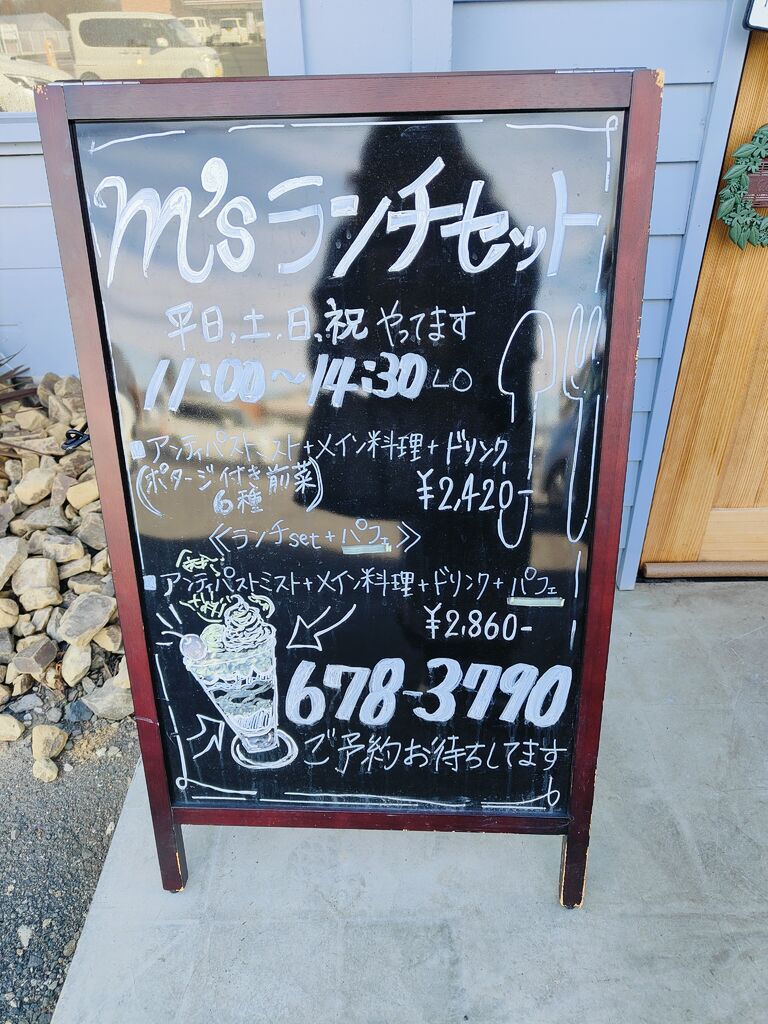 m'sランチセット
平日,土,日,祝やってます
11:00~14:30 LO
■アンティパストミスト+メイン料理+ドリンク
(ポタージ付き前菜6種)
¥2,420-
《ランチset+パフェ》
■アンティパストミスト+メイン料理+ドリンク+パフェ
¥2,860-
678-3790
ご予約お待ちしてます